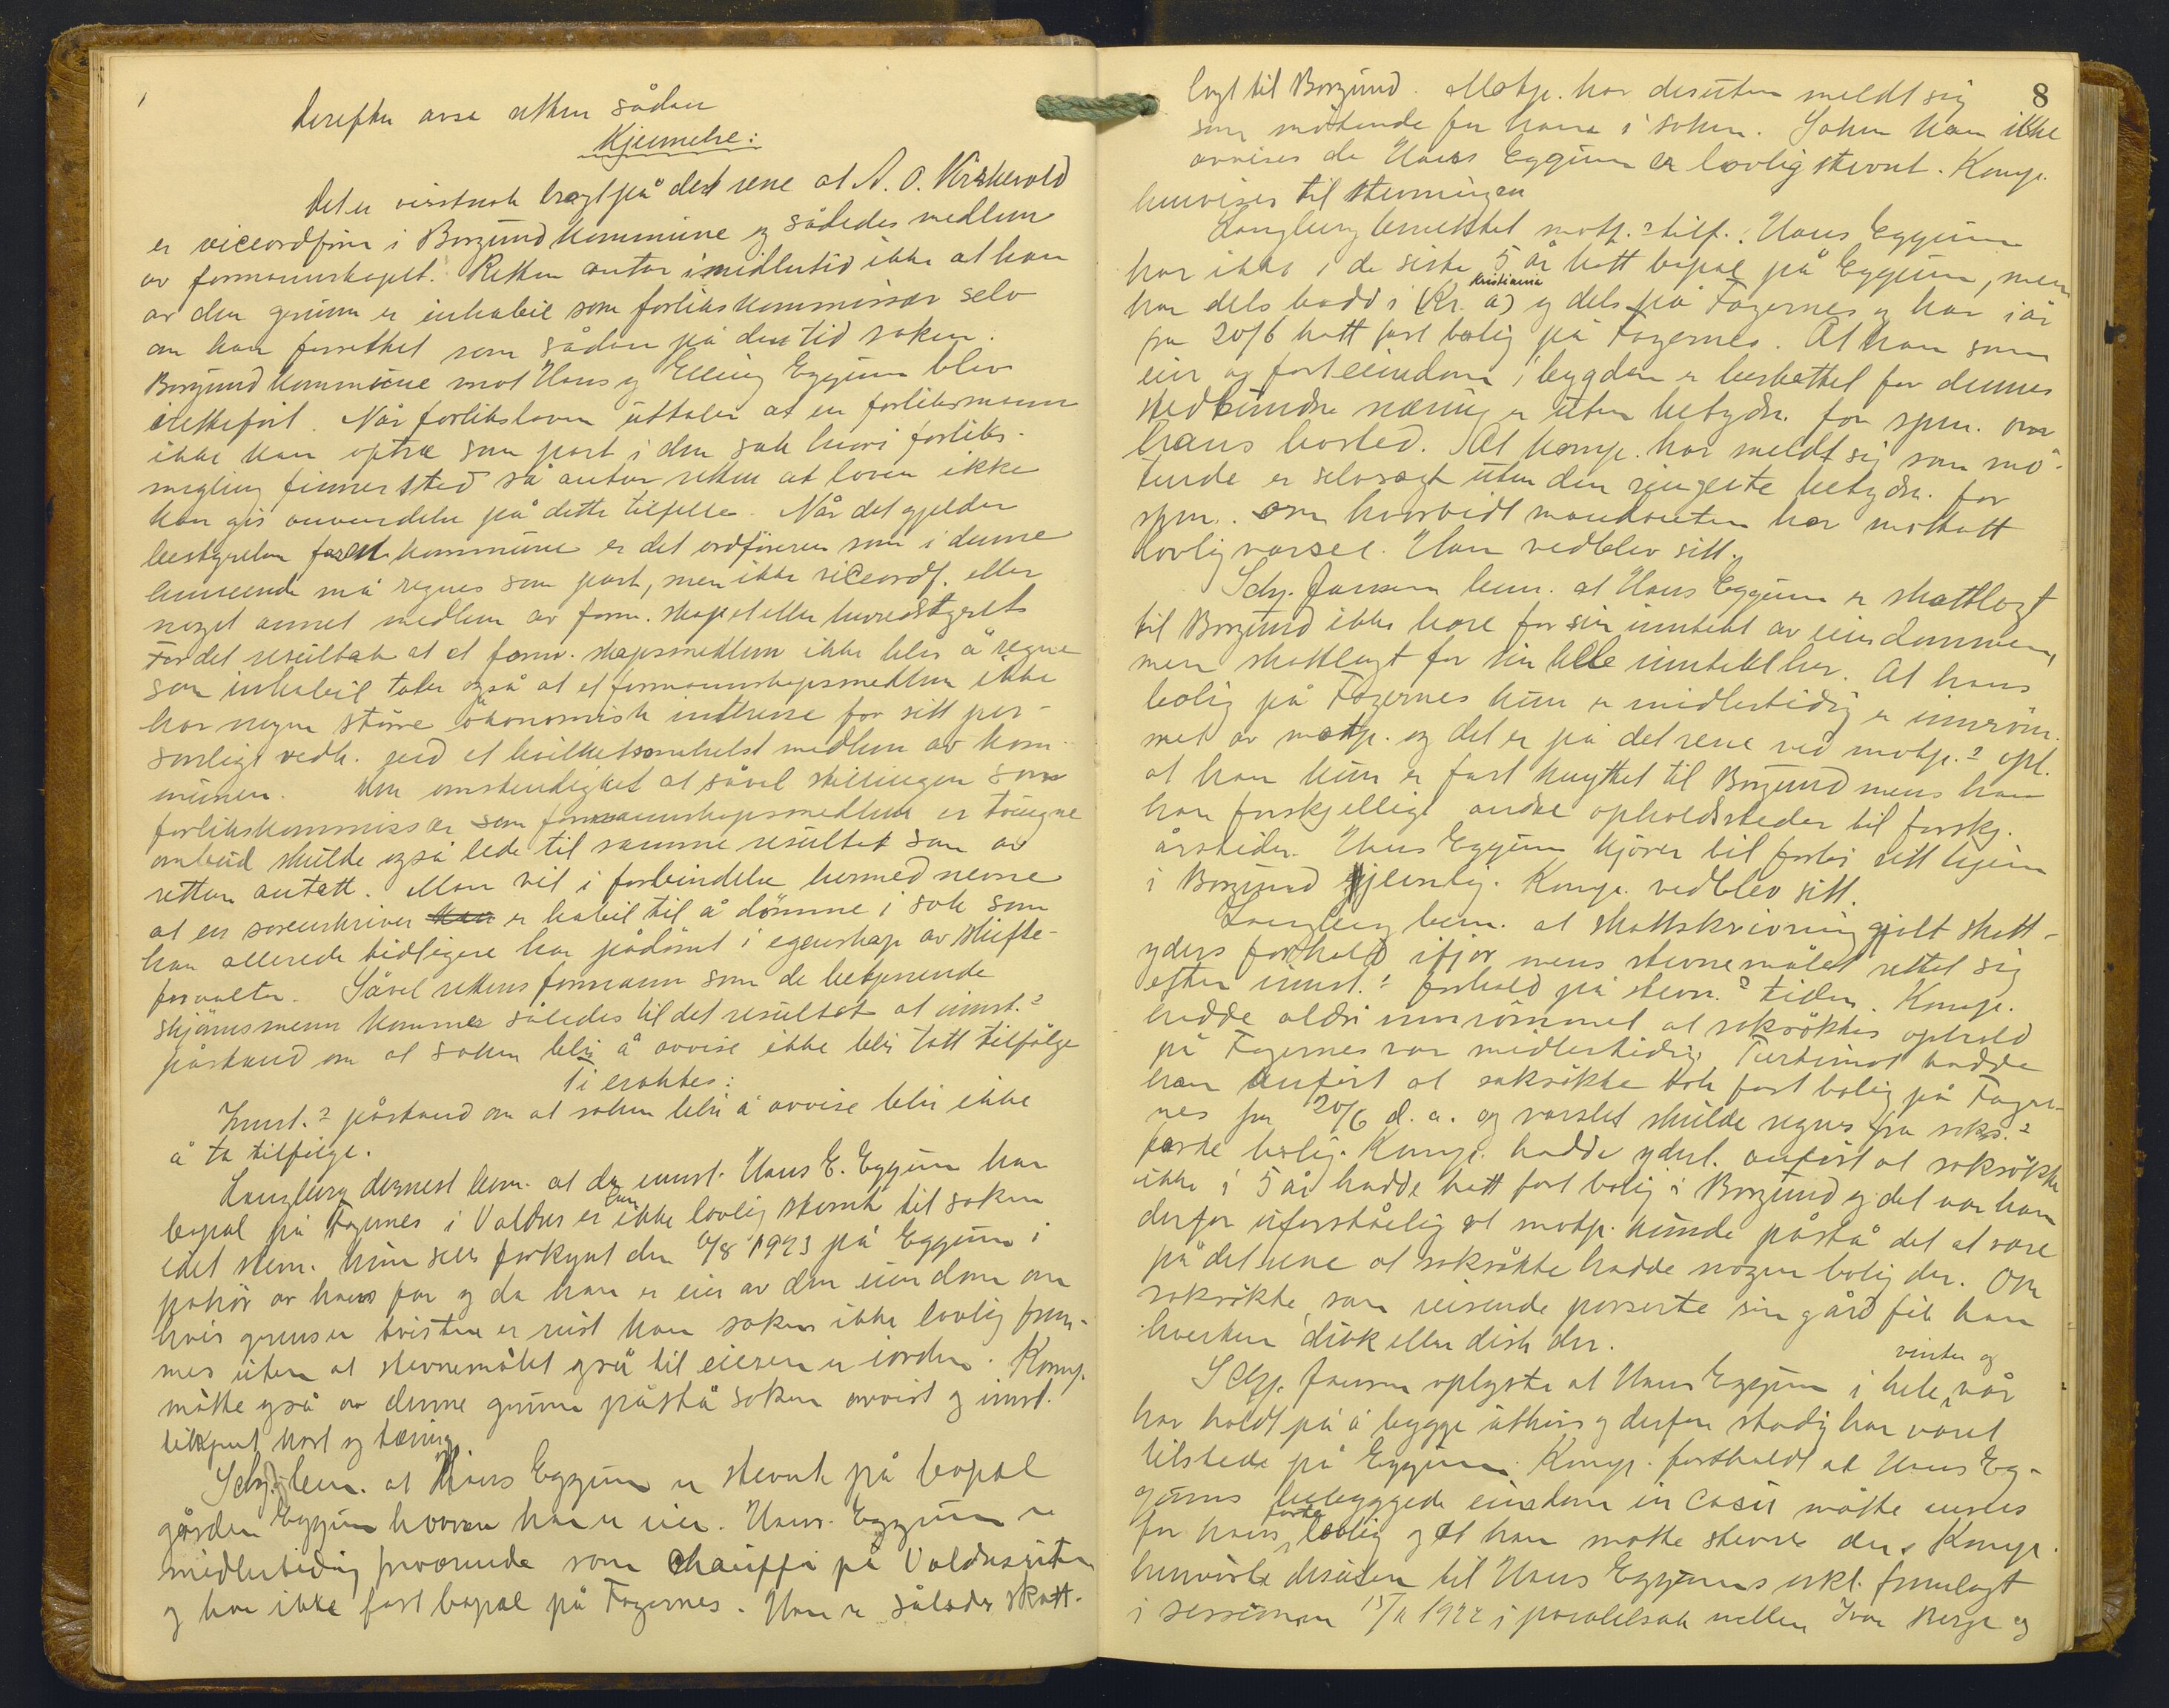 Derefter avsa retten sådan
Kjennelse:
Det er visstnok bragt på det rene at A. O. Virkesvold
er viceordfører i Borgund kommune og således medlem
av formannskapet. Retten antar imidlertid ikke at han
av den grunn er inhabil som forlikskommissær selv
om han forrettet som sådan på den tid saken
Borgund kommune mot Hans og Elling Eggum blev
rettefört. Når forliksloven uttaler at en forliksmann
ikke kan optre som part i den sak hvori forliks-
megling finner sted så antar retten at loven ikke
kan gis anvendelse på dette tilfelle. Når det gjelder
bestyrelsen for en kommune er det ordföreren som i denne
henseende må regnes som part, men ikke viceordf. eller
noget annet medlem av form.skapet eller herredstyret.
For det resultat at et form.skapsmedlem ikke blir å regne
som inhabil taler også at et formannskapsmedlem ikke
har nogen större ökonomisk interesse for sitt per-
sonlige vedk. end et hvilketsomhelst medlem av kom-
munen. Den omstendighet at såvel stillingen som
forlikskommissær som formannskapsmedlem er tvungne
ombud skulde også lede til samme resultat som av
retten antatt. Man vil i forbindelse hermed nevne
at en sorenskriver er habil til å dömme i sak som
han allerede tidligere har pådömt i egenskap av skifte-
forvalter. Såvel rettens formann som de betjenende
skjönsmenn kommer således til det resultat at innst.s
påstand om at saken blir å avvise ikke blir tatt tilfölge
Ti eraktes:
Innst.s påstand om at saken blir å avvise blir ikke
å ta tilfölge.
Langberg dernest bem. at da innst. Hans E. Eggum har
bopæl på Fagernes i Valdres er han ikke lovlig stevnt til saken
idet stevn. kun sees forkynt den 6/8 1923 på Eggum i
påhör av hans far og da han er eier av den eiendom om
hvis grenser tvisten er reist kan saken ikke lovlig frem-
mes uten at stevnemålet også til eieren er iorden. Komp.
måtte også av denne grunn påstå saken avvist og innst.
tilkjent kost og tæring
Schj. J. bem. at Hans Eggum er stevnt på bopæl
gården Eggum hvorav han er eier. Hans Eggum er
midlertidig fraværende som chauffør på Valdresruten
og har ikke fast bopæl på Fagernes. Han er således skatt-
8
lagt til Borgund. Motp. har desuten meldt sig
som mötende for ham i saken. Saken kan ikke
avvises da Hans Eggum er lovlig stevnt. Komp.
henviser til stevningen
Langberg benektet motp.s tilf. Hans Eggum
har ikke i de siste 5 år hatt bopæl på Eggum, men
Kristiania
har dels bodd i (Kr. a) og dels på Fagernes og har i år
fra 20/6 hatt fast bolig på Fagernes. At han som
eier av fast eiendom i bygden er beskattet for dennes
stedbundne næring er uten betydn. for spm. om
hans bosted. At komp. har meldt sig som mö-
tende er selvsagt uten den ringeste betydn. for
spm. om hvorvidt mandanten har mottatt
lovlig varsel. Han vedblev sitt.
Schj. Jansen bem. at Hans Eggum er skattlagt
til Borgund ikke bare for sin inntekt av eiendommen,
men skattlagt for sin hele inntekt her. At hans
bolig på Fagernes kun er midlertidig er innröm-
met av motp. og det er på det rene ved motp.s opl.
at han kun er fast knyttet til Borgund mens han
har forskjellige andre opholdssteder til forskj.
årstider. Hans Eggum kjörer bil forbi sitt hjem
i Borgund jevnlig. Komp. vedblev sitt.
Langberg bem. at skattskrivning gjelt skatt-
yders forhold ifjor mens stevnemålet rettet sig
efter innst.s forhold på stevn.s tiden. Komp.
hadde aldri innrömmet at saksöktes ophold
på Fagernes var midlertidig. Tvertimot hadde
han anfört at saksökte tok fast bolig på Fager-
nes fra 20/6 d. a. og varslet skulde regnes fra saks.s
faste bolig. Komp. hadde yderl. anfört at saksökte
ikke i 5 år hadde hatt fast bolig i Borgund og det var ham
derfor uforståelig at motp. kunde påstå det at være
på det rene at saksökte hadde nogen bolig der. Om
saksökte som reisende passerte sin gård fik han
hverken drikk eller disk der.
vinter og
Schj. Jansen oplyste at Hans Eggum i hele vår
har holdt på å bygge uthus og derfor stadig har været
tilstede på Eggum. Komp. fastholdt at Hans Eg-
gums bebyggede eiendom in casu måtte ansees
faste
for hans bolig og at han måtte stevnes der. Komp.
henviste desuten til Hans Eggums erkl. fremlagt
i sessionen 15/11 1922 i paralellsak mellem Ivar Berge og